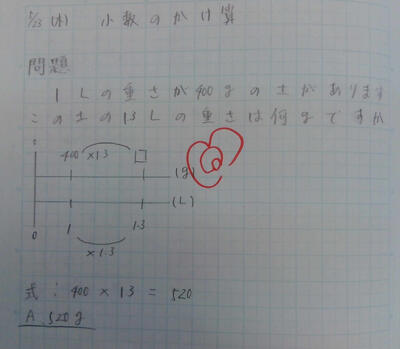 5/23 (木) 小数のかけ算
問題
1Lの重さが400gの土があります
この土の1.3Lの重さは何gですか
0
400 ×1.3 □
(g)
(L)
0 1 1.3
×1.3
式:400×1.3=520
A 520g